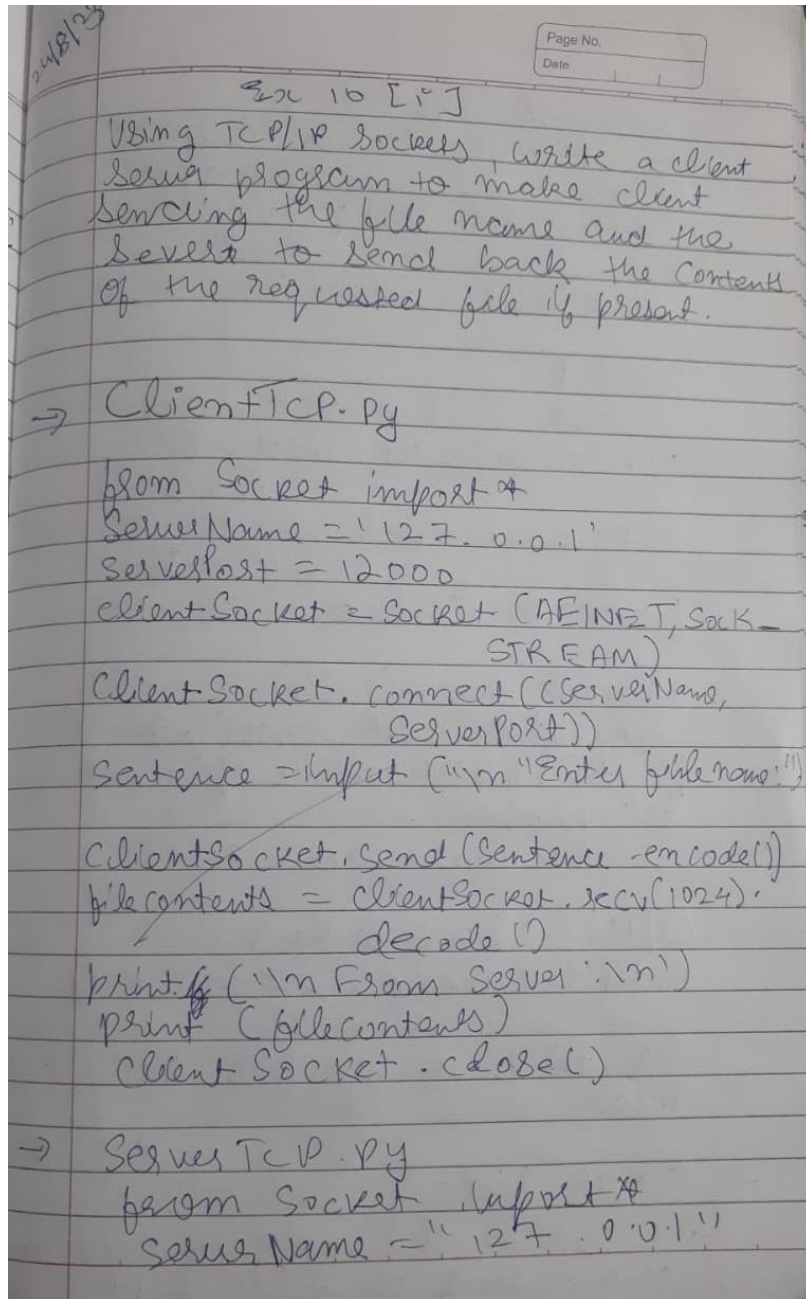 24/8/23
Page No.
Date
Ex 10 [i]
Using TCP/IP Sockets, write a client
Server program to make client
sending the file name and the
Severr to send back the Contents
of the requested file if present.
→ ClientTCP.py
from Socket import *
ServerName = '127.0.0.1'
serverPort = 12000
clientSocket = Socket (AFINET, SOCK_
STREAM)
ClientSocket. connect ((ServerName,
ServerPort))
Sentence = input ("\n "Enter file name:")
ClientSocket. send (Sentence .encode())
filecontents = clientSocket. recv(1024).
decode ()
print ('\n From Server :\n')
print (filecontents)
Client Socket . close()
→ ServerTCP.py
from Socket import *
serverName = "127.0.0.1"